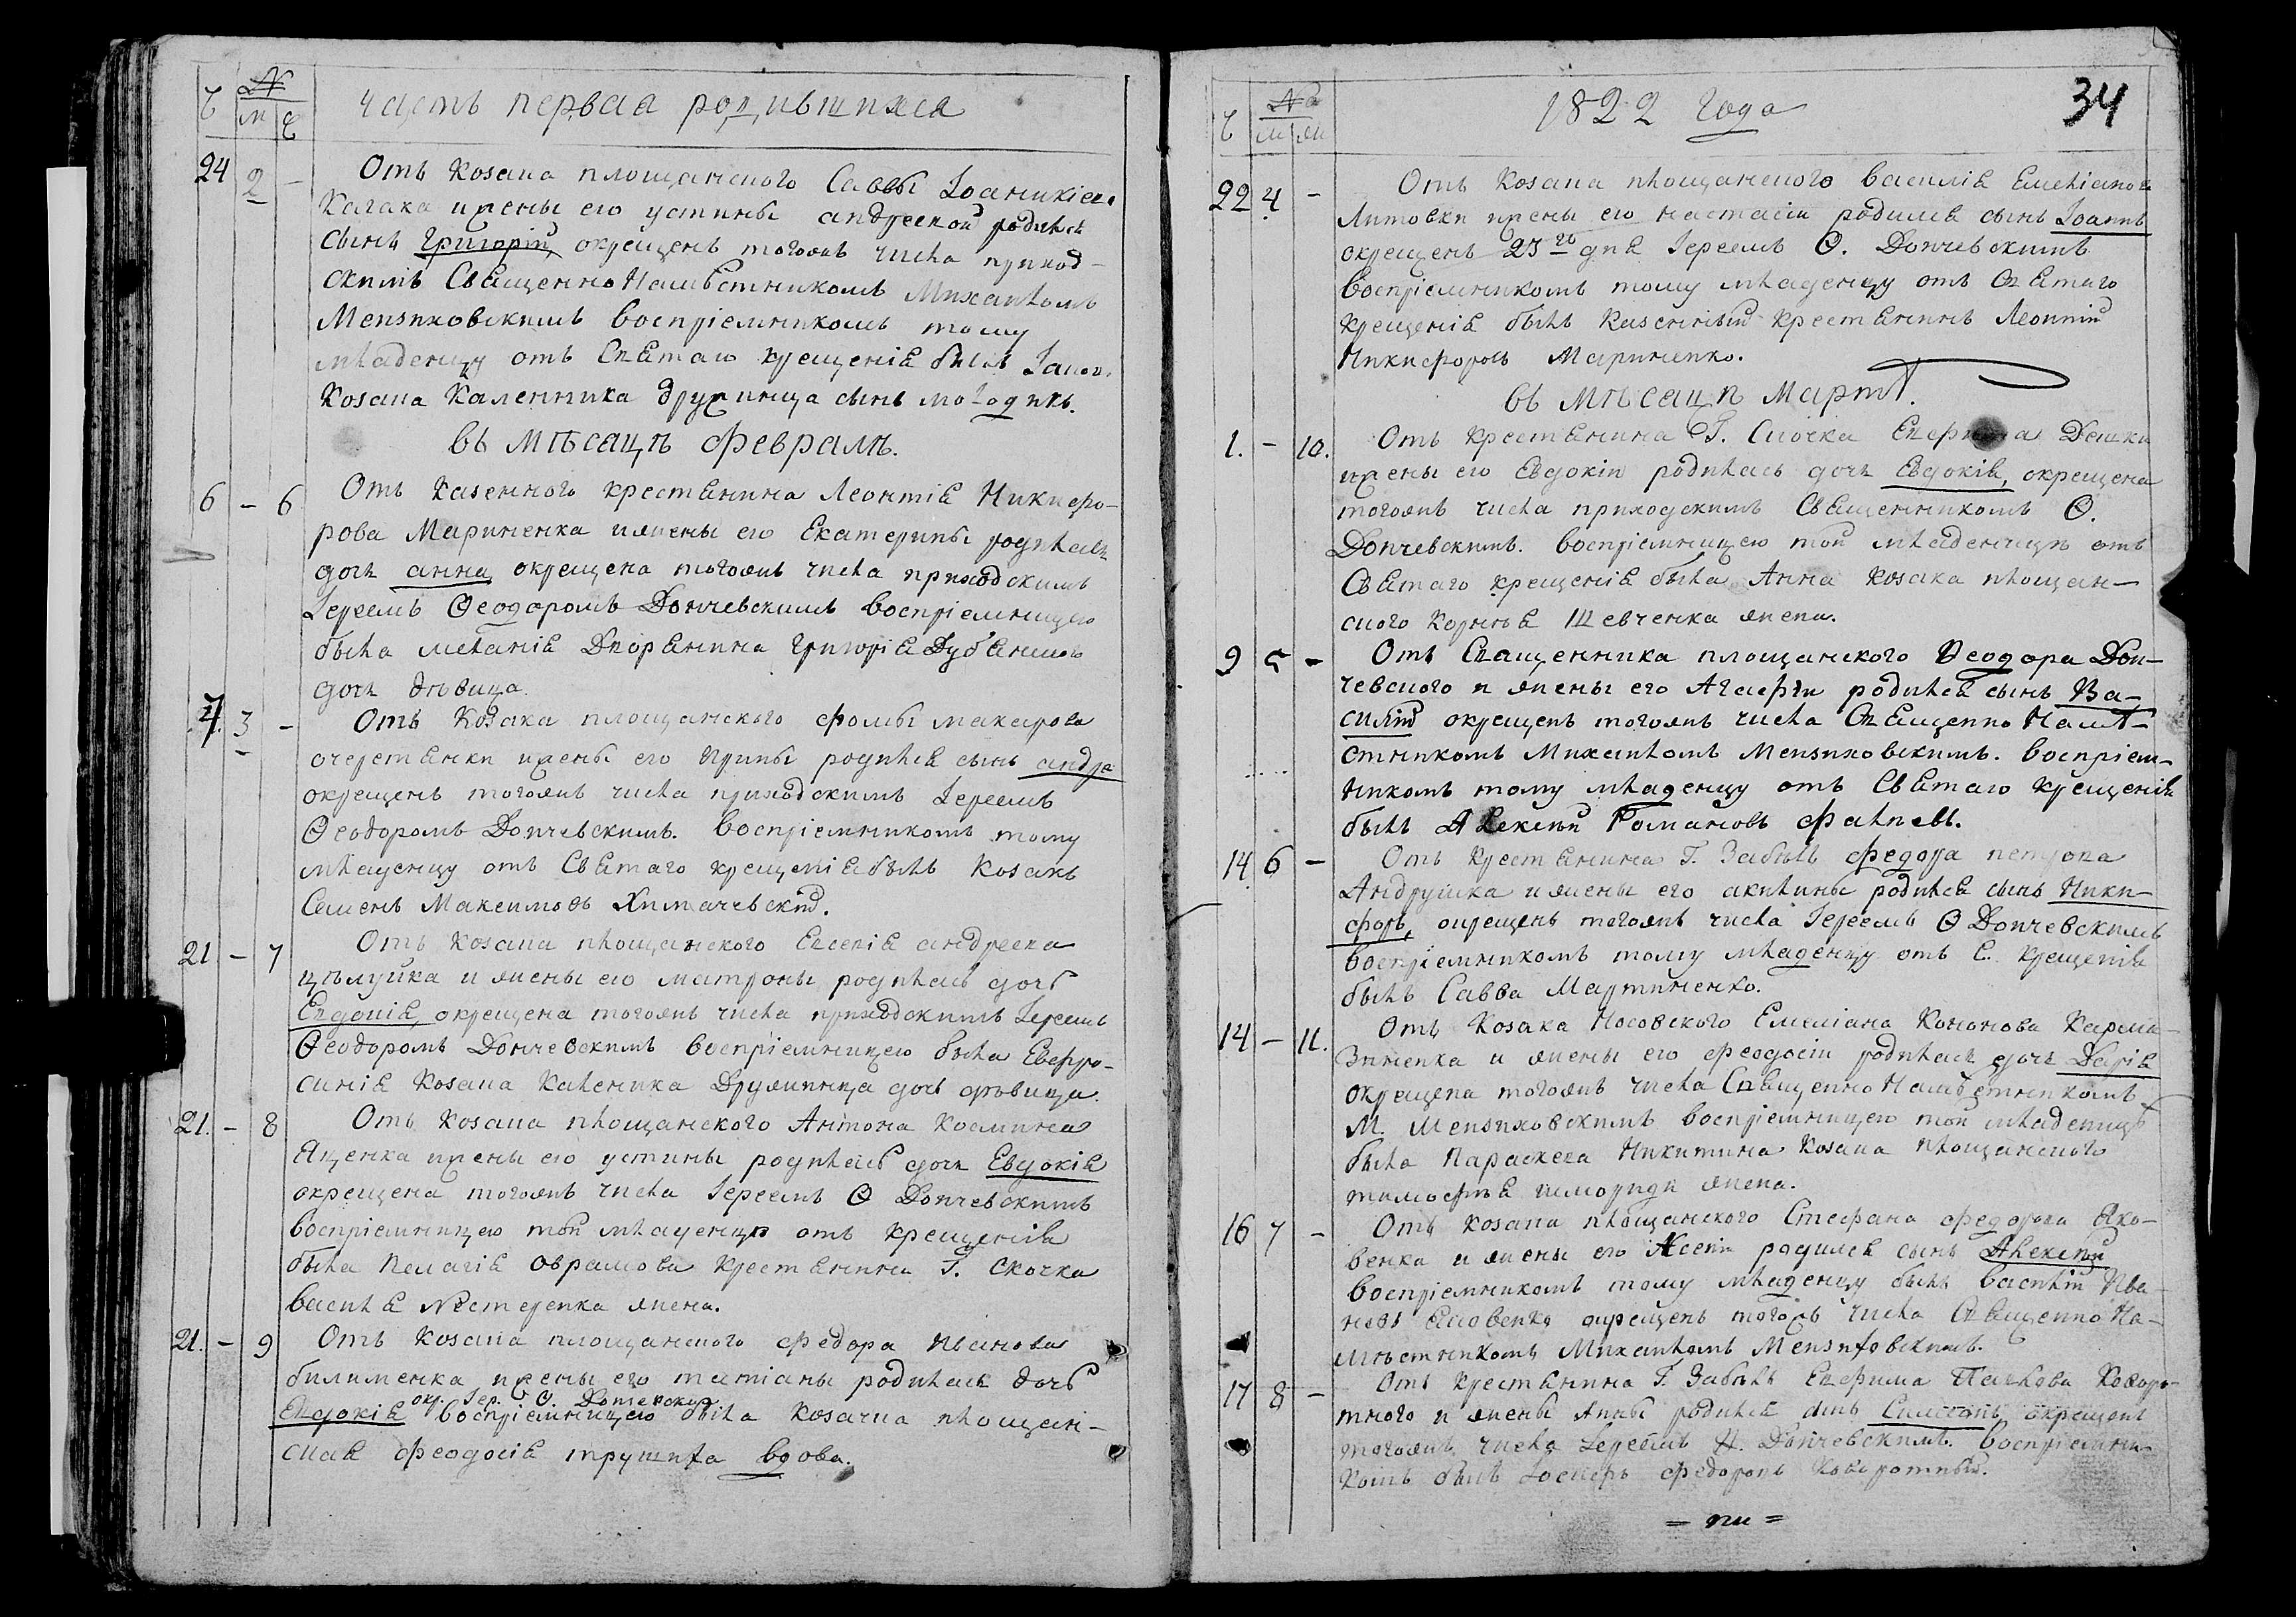 Ч № м ж
часть первая родившихся
24 2 -
Отъ козака площанского Саввы Іоаникіева
Калака и жены его устины андреевой родился
сынъ Григорій, окрещенъ тогожъ числа приход-
скимъ СвященноНамѣстникомъ Михаиломъ
Мензиховскимъ воспріемникомъ тому
младенцу отъ Святаго крещенія былъ
Козака Каленника дружинца сынъ
въ мѣсацѣ февралѣ.
6 - 6
Отъ казенного крестянина Леонтія Никифо-
рова Мариненка и жены его Екатерины родилась
дочь анна, окрещена тогожъ числа приходскимъ
Іереемъ Ѳеодоромъ Дончевскимъ воспріемницею
была меланія Дворянина григорія
дочь дѣвица.
7. 3 -
Отъ Козака площанского фомы макарова
очеретянки и жены его ирины родился сынъ андре
окрещенъ тогожъ числа приходскимъ Іереемъ
Ѳеодоромъ Дончевскимъ. воспріемникомъ тому
младенцу отъ Святаго крещенія былъ козакъ
Семенъ Максимовъ Химачевскій.
21 - 7
Отъ козака площанского Евсевія андреева
цѣлуйка и жены его матроны родилась дочь
Евдокія, окрещена тогожъ числа приходскимъ Іереемъ
Ѳеодоромъ Дончевскимъ воспріемницею была Евфро-
синія козака каленика Дружинца дочь дѣвица.
21. - 8
Отъ козака площанского Антона Космина
Яценка и жены его устины родилась дочь Евдокія
окрещена тогожъ числа Іереемъ Ѳ Дончевскимъ
воспріемницею той младенцѣ отъ крещенія
была Пелагія аврамова крестянина Г. Скочка
василя Нестеренка жена.
21. - 9
Отъ козака площанского федора иванова
билименка и жены его татіаны родилась дочь
окр. Іер. Ѳ. Дончевски
Евдокія воспріемницею была козачка площан-
ская феодосія трушиха вдова.
Ч № м ж
1822 года
34
22 4 -
Отъ козака площанского василія Емеліанова
Литовки и жены его настасіи родился сынъ Іоаннъ
окрещенъ 23го дня Іереемъ Ѳ. Дончевскимъ
воспріемникомъ тому младенцу отъ Святаго
крещенія былъ казенный крестянинъ Леонтій
Никифоровъ Мариненко.
въ мѣсацѣ мартѣ.
1. - 10.
Отъ крестянина Г. Скочка Дешки
и жены его Евдокіи родилась дочь Евдокія, окрещена
тогожъ числа приходскимъ Священникомъ Ѳ.
Дончевскимъ. воспріемницею той младенчицѣ отъ
Святаго крещенія была Анна козака площан-
ского Корнія Шевченка жена.
9 5 -
Отъ Священника площанского Ѳеодора Дон-
чевского и жены его Агафіи родился сынъ Ва-
силій окрещенъ тогожъ числа СвященноНамѣ-
стникомъ Михаиломъ Мензиховскимъ. воспріем-
никомъ тому младенцу отъ Святаго крещенія
былъ Алексѣй Романовъ
14 6 -
Отъ крестянина Г. Забѣлъ федора петрова
Андрушка и жены его акилины родился сынъ Ники-
форъ, окрещенъ тогожъ числа Іереемъ Ѳ Дончевскимъ
воспріемникомъ тому младенцу отъ С. крещенія
былъ Савва Мартиненко.
14 - 11.
Отъ козака Носовского Емеліана Кононова Карма-
зиненка и жены его феодосіи родилась дочь Дарія
окрещена тогожъ числа СвященноНамѣстникомъ
М. Мензиховскимъ воспріемницею той младеницѣ
была Параскева Никитина козака площанского
тимофѣя жена.
16 7 -
Отъ козака площанского Стефана федорова Яко-
венка и жены его Ксеніи родился сынъ Алексѣй
воспріемникомъ тому младенцу былъ василій Ива-
новъ Яковенко окрещенъ тогожъ числа СвященноНа-
мѣстникомъ Михаиломъ Мензиховскимъ.
17 8 -
Отъ крестянина Г. Забѣлъ Евфима Павлова Коворо-
тного и жены Анны родился сынъ Симеонъ окрещенъ
тогожъ числа Іереемъ Ѳ. Дончевскимъ. воспріемни-
комъ былъ федоровъ Коворотный.